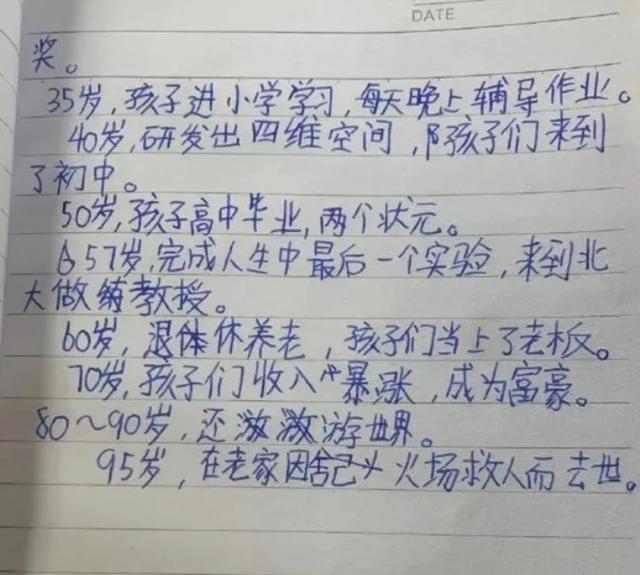 DATE
奖。
35岁,孩子进小学学习,每天晚上辅导作业。
40岁,研发出四维空间,孩子们来到
了初中。
50岁,孩子高中毕业,两个状元。
57岁,完成人生中最后一个实验,来到北
大做教授。
60岁,退休养老,孩子们当上了老板。
70岁,孩子们收入暴涨,成为富豪。
80～90岁,还游世界。
95岁,在老家因火场救人而去世。